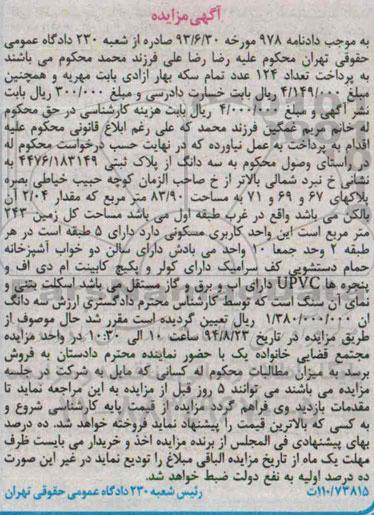 آگهی مزایده
به موجب دادنامه ۹۷۸ مورخه ۹۳/۶/۳۰ صادره از شعبه ۲۳۰ دادگاه عمومی
حقوقی تهران محکوم علیه رضا رضا علی فرزند محمد محکوم می باشند
به پرداخت تعداد ۱۲۴ عدد تمام سکه بهار ازادی بابت مهریه و همچنین
مبلغ ۴/۱۴۹/۰۰۰ ریال بابت خسارت دادرسی و مبلغ ۳۰۰/۰۰۰ ریال بابت
نشر آگهی و مبلغ ۴/۰۰۰/۰۰۰ ریال بابت هزینه کارشناسی در حق محکوم
له خانم مریم غمگین فرزند محمد که علی رغم ابلاغ قانونی محکوم علیه
اقدام به پرداخت به عمل نیاورده که در نهایت حسب درخواست محکوم له
در راستای وصول محکوم به سه دانگ از پلاک ثبتی ۴۴۷۶/۱۸۳۱۴۹ به
نشانی خ نبرد شمالی بالاتر از خ صاحب الزمان کوچه حبیب خیاطی بصره
پلاکهای ۶۷ و ۶۹ و ۷۱ به مساحت ۸۳/۹۰ متر مربع که مقدار ۲/۰۴ آن
بالکن می باشد واقع در غرب طبقه اول می باشد مساحت کل زمین ۲۴۳
متر مربع است این واحد کاربری مسکونی دارد دارای ۵ طبقه است در هر
طبقه ۲ وحد جمعا ۱۰ واحد می بادش دارای سالن دو خواب آشپزخانه
حمام دستشویی کف سرامیک دارای کولر و پکیج کابینت ام دی اف و
پنجره ها UPVC دارای اب و برق و گاز مستقل می باشد اسکلت بتنی و
نمای آن سنگ است که توسط کارشناس محترم دادگستری ارزش سه دانگ
ان ۱/۳۸۰/۰۰۰/۰۰۰ ریال تعیین گردیده است مقرر شد حال موصوف از
طریق مزایده در تاریخ ۹۴/۸/۲۳ ساعت ۱۰ الی ۱۰:۲۰ در واحد مزایده
مجتمع قضایی خانواده یک با حضور نماینده محترم دادستان به فروش
برسد به میزان مطالبات محکوم له کسانی که مایل به شرکت در جلسه
مزایده می باشند می توانند ۵ روز قبل از مزایده به این مراجعه نماید تا
مقدمات بازدید وی فراهم گردد مزایده از قیمت پایه کارشناسی شروع و
به کسی که بالاترین قیمت را پیشنهاد نماید فروخته خواهد شد. ده درصد
بهای پیشنهادی فی المجلس از برنده مزایده اخذ و خریدار می بایست ظرف
مهلت یک ماه از تاریخ مزایده الباقی مبلاغ را تودیع نماید در غیر این صورت
ده درصد اولیه به نفع دولت ضبط خواهد شد.
۱۱۰/۷۳۸۱۵ت رئیس شعبه ۲۳۰ دادگاه عمومی حقوقی تهران